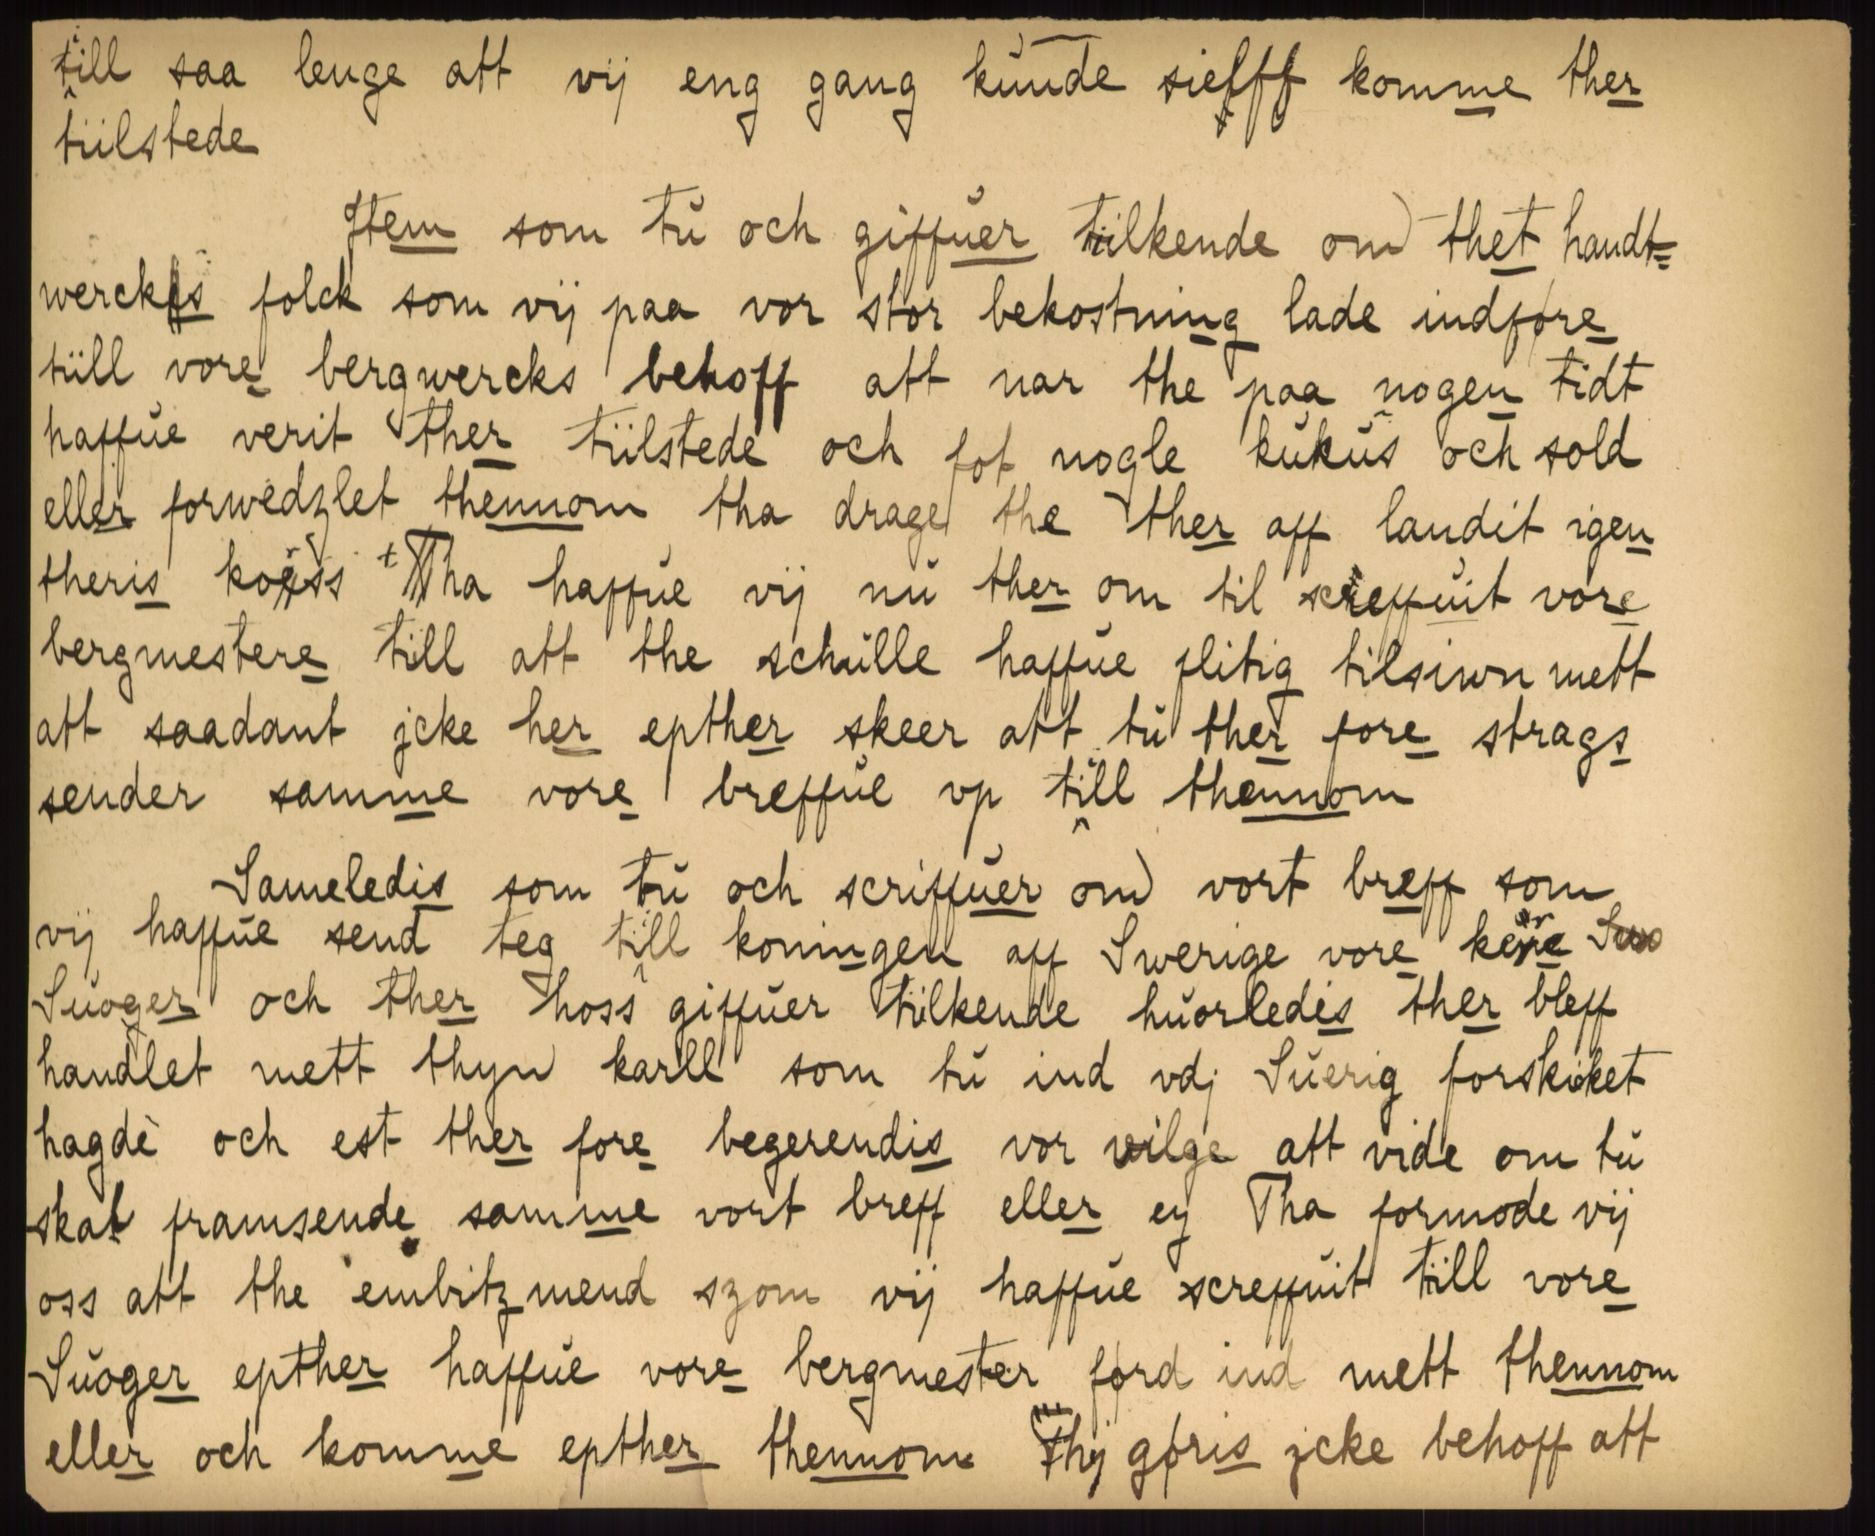 till saa lenge att vij eng gang kunde sielfff komme ther
tiilstede
Jtem som tŭ och giffŭer tiilkende om thet handt=
wercks folck som vij paa vor stor bekostning lade indføre
tiill vore bergwercks behoff att nar the paa nogen tidt
haffŭe verit ther tiilstede och fot nogle kŭkŭs och sold
eller forwedzlet thennom tha drage the ther aff landit igen
theris koess Tha haffŭe vij nŭ ther om til screffŭit vore
bergmestere till att the schŭlle haffŭe flitig tilsiwn mett
att saadant jcke her epther skeer att tŭ ther fore strags
sender samme vore breffŭe vp till thennom
Sameledis som tŭ och scriffŭer om vort breff som
vij haffŭe send teg till koningen aff Swerige vore kere
Sŭoger och ther hoss giffŭer tiilkende hŭorledis ther bleff
handlet mett thyn karll som tŭ ind vdj Sŭerig forskicket
hagde och est ther fore begerendis vor vilge att vide om tŭ
skal framsende samme vort breff eller ey Tha formode vij
oss att the embitzmend szom vij haffŭe screffŭit tiill vore
Sŭoger epther haffŭe vore bergmester ford ind mett thennom
eller och komme epther thennom Thij gøris jcke behoff att